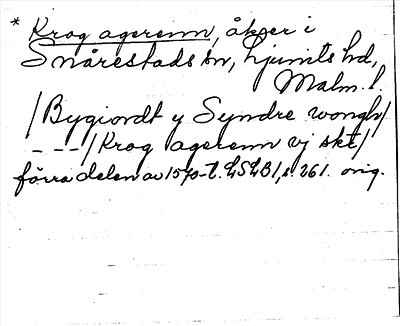 * Krog agerenn, åker i
Snårestads sn, Ljunits hd,
Malm. l.
/Bygiordt y Syndre wongh/
---/Krog agerenn vj skt/
förra delen av 1570-t. LSLB1, s 261. orig.